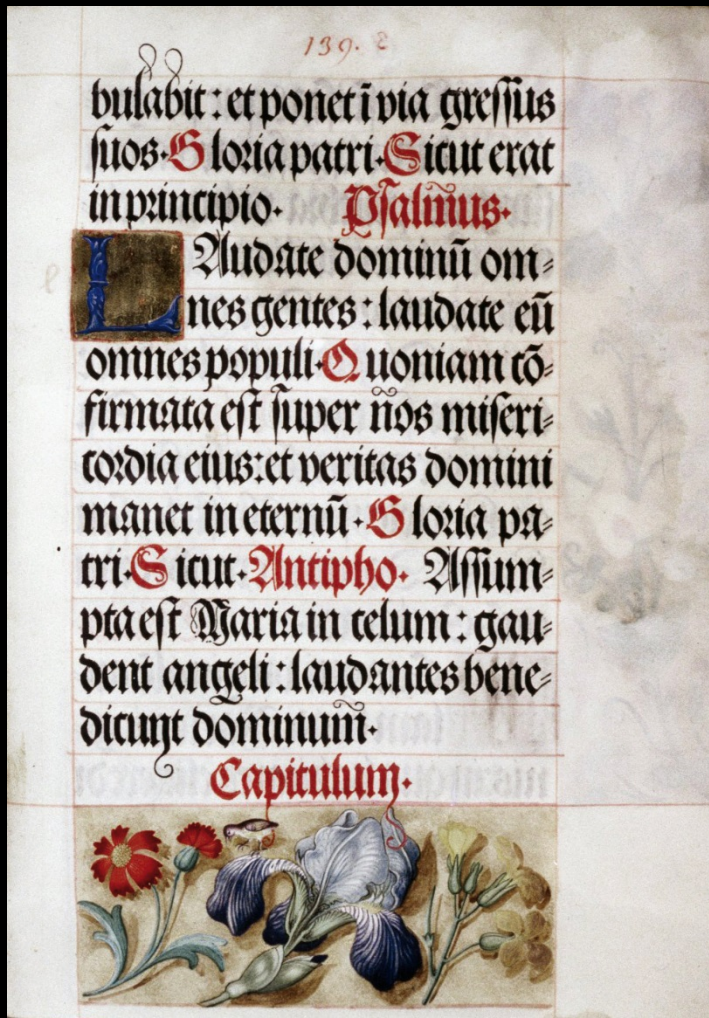 139. 2
bulabit : et ponet ī via gressus
suos · Gloria patri · Sicut erat
in principio · Psalmus ·
LAudate dominū om=
nes gentes : laudate eū
omnes populi · Quoniam cō=
firmata est super nos miseri=
cordia eius : et veritas domini
manet in eternū · Gloria pa=
tri · Sicut · Antipho · Assum=
pta est Maria in celum : gau=
dent angeli : laudantes bene=
dicunt dominum ·
Capitulum ·